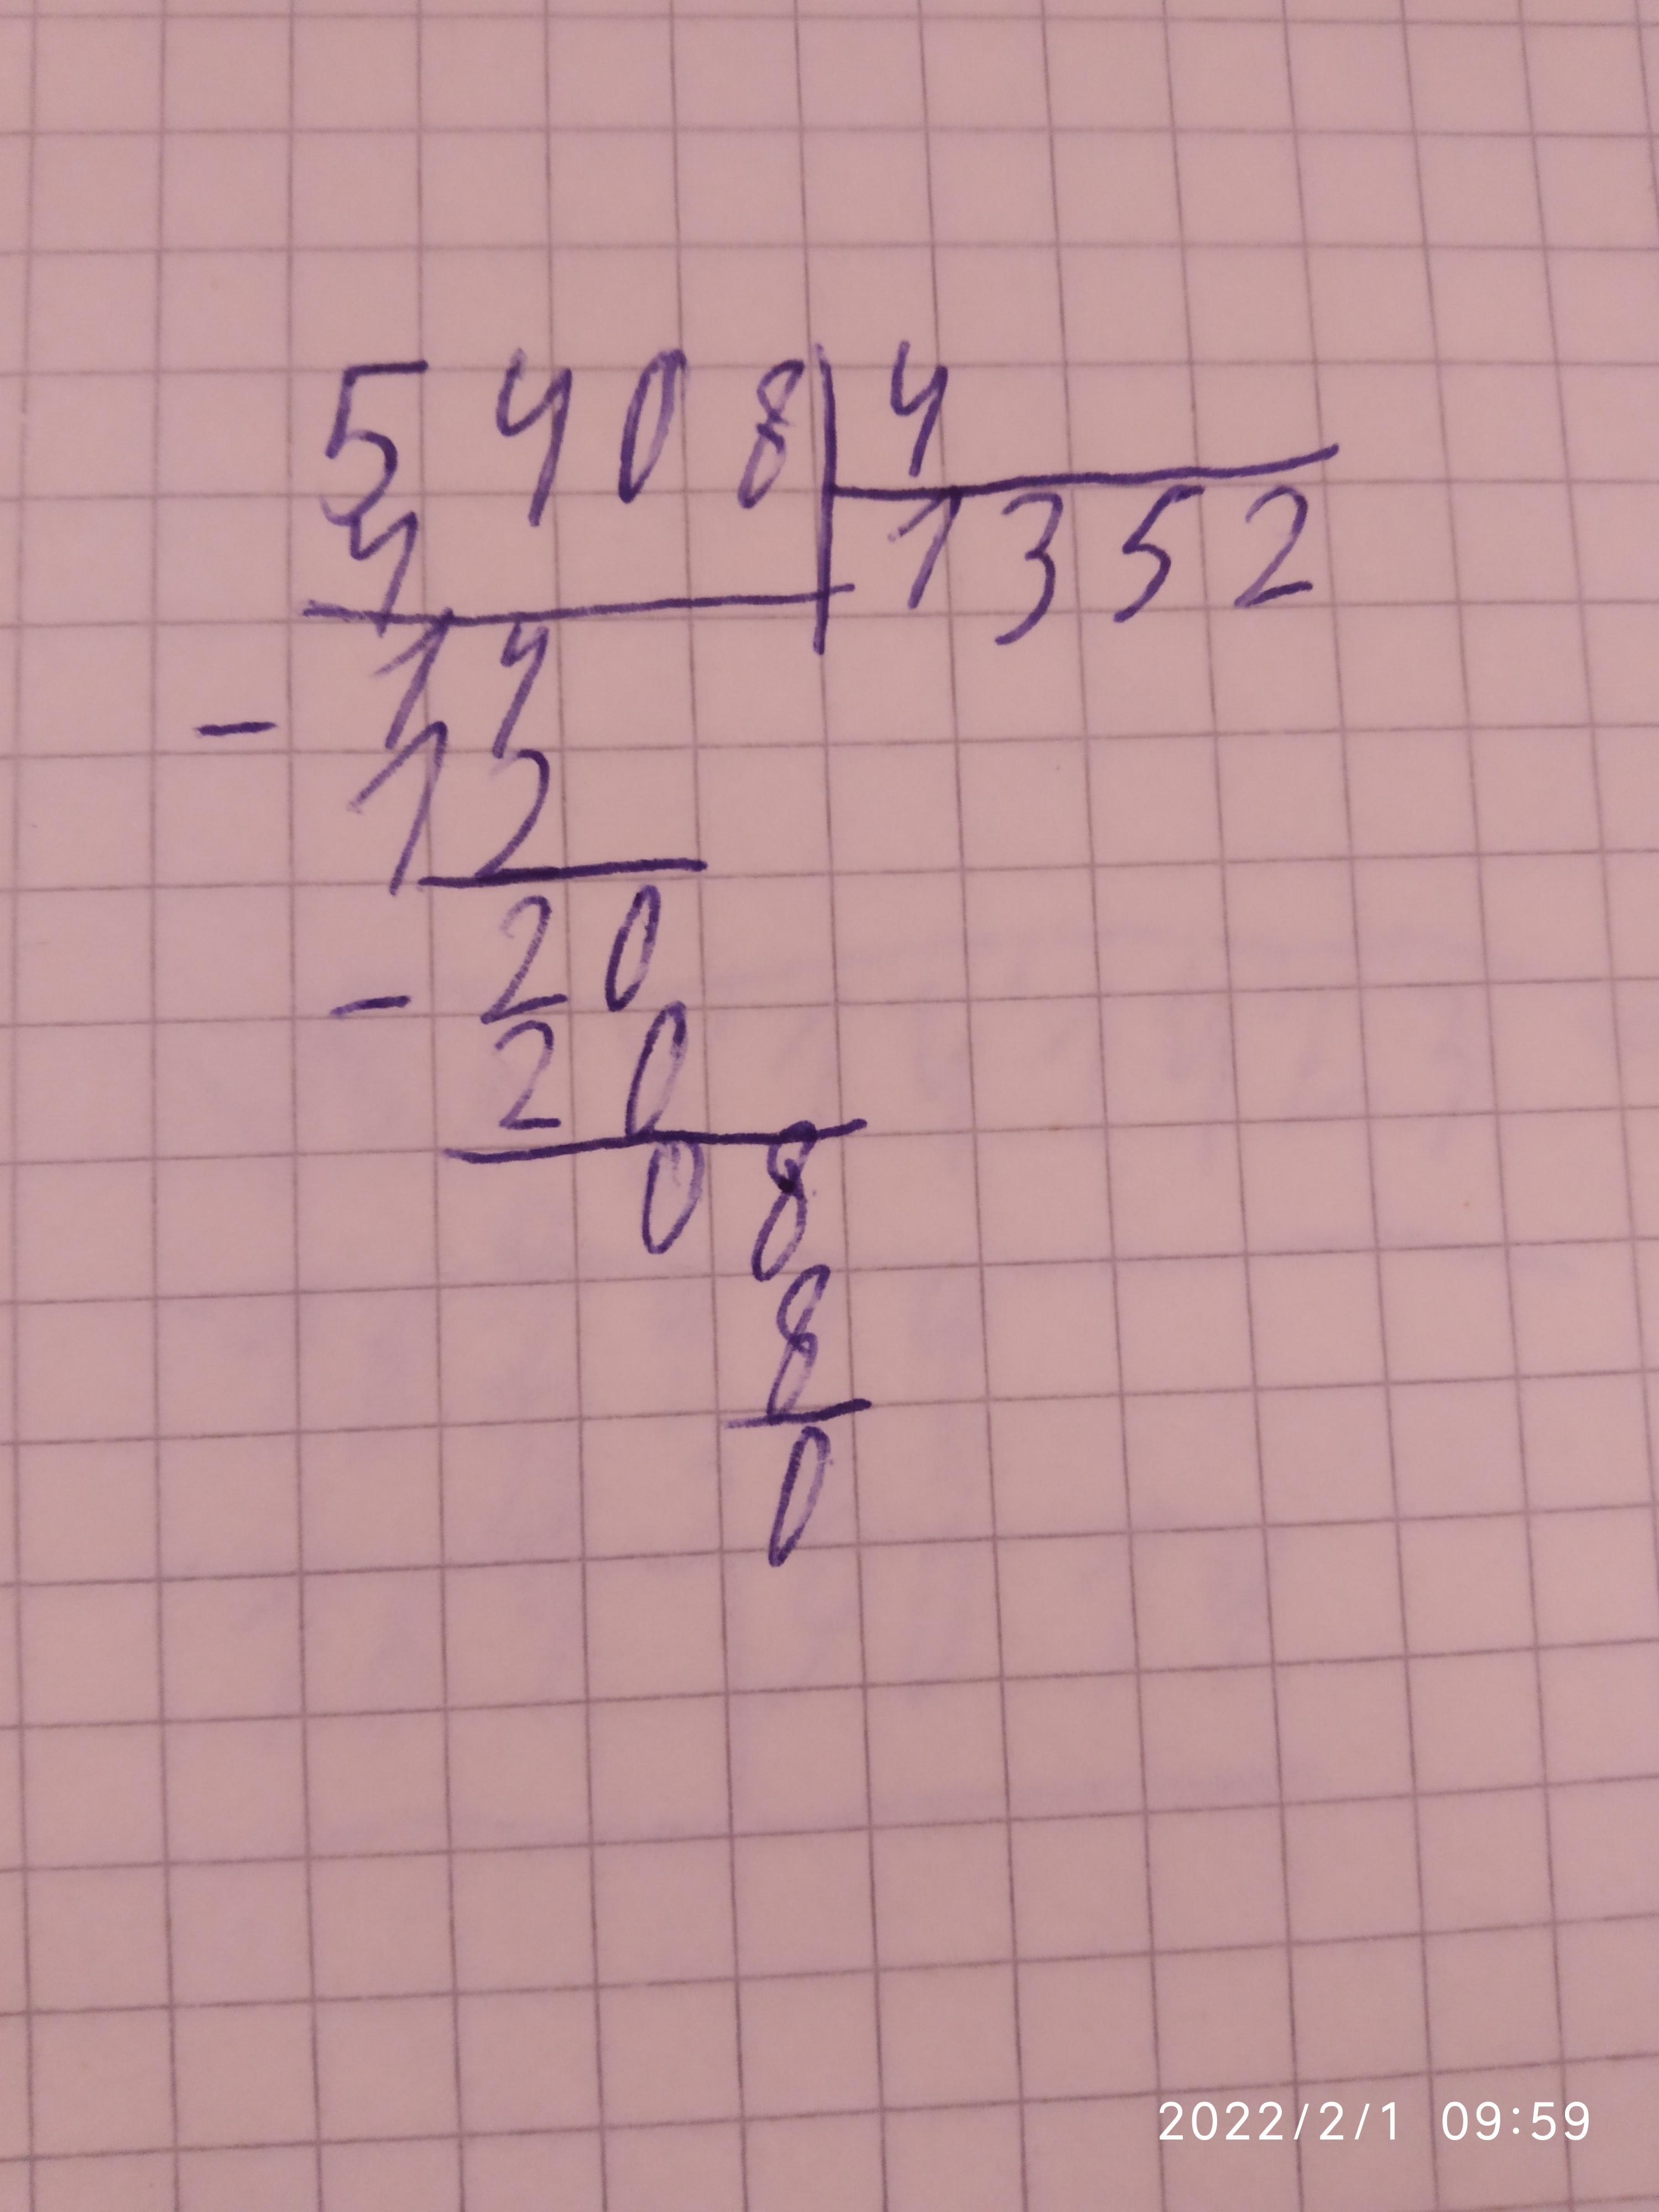 5408 4
4 1352
14
- 12
20
- 20
08
8
0
2022/2/1 09:59